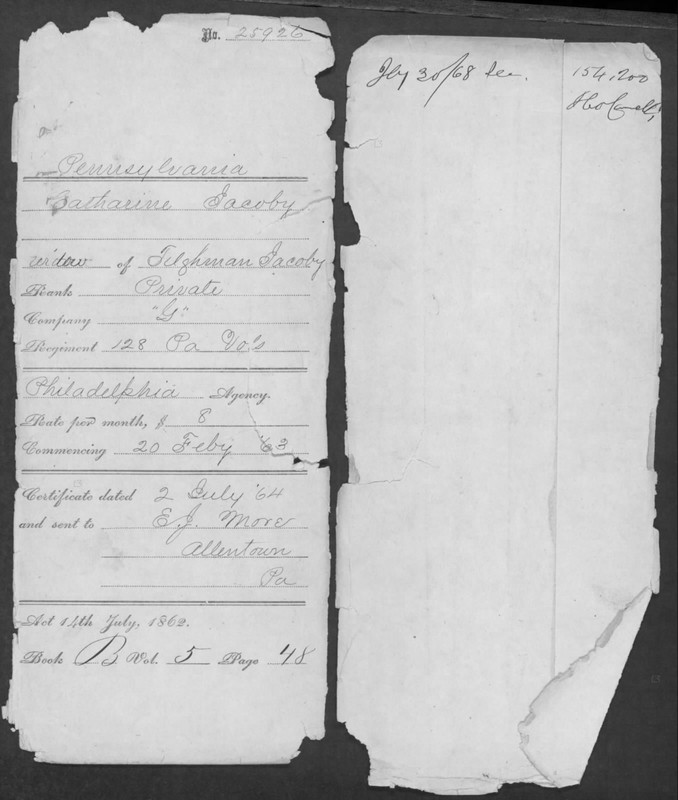 No. 25926
Pennsylvania
Catharine Jacoby
widow of Tilghman Jacoby
Rank Private
Company "G"
Regiment 128 Pa Vo's
Philadelphia Agency.
Rate per month, $ 8
Commencing 20 Feby '63
Certificate dated 2 July '64
and sent to E.J. More
Allentown
Pa
Act 14th July, 1862.
Book B Vol. 5 Page 48
30/68
154,200